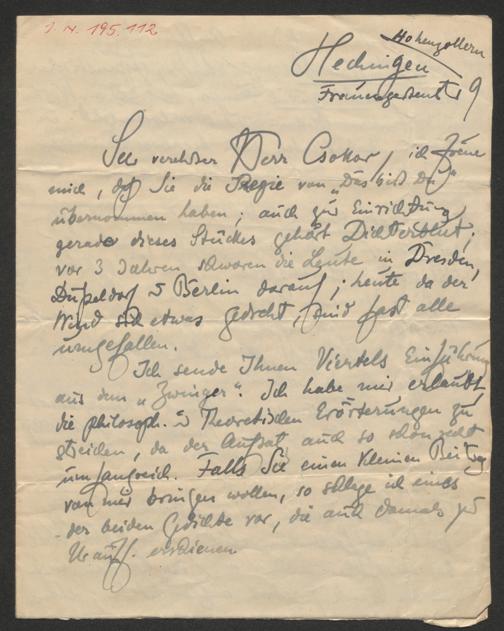 I. N. 195.112
Hohenzollern
Hechingen
Frauengartenstr 9
Sehr verehrter Herr Csokor, ich freue
mich, daß Sie die Regie von „Das bist Du"
übernommen haben; auch zur Einrichtung
gerade dieses Stückes gehört Dichterblut;
vor 3 Jahren schworen die Leute in Dresden,
Düsseldorf u Berlin darauf; heute da der
Wind sich etwas gedreht, sind fast alle
umgefallen.
Ich sende Ihnen Viertels Einführung
aus dem „Zwinger". Ich habe mir erlaubt,
die philosoph. u Theoretischen Erörterungen zu
streichen, da der Aufsatz auch so schon recht
umfangreich. Falls Sie einen kleinen Beitrag
von mir bringen wollen, so schlage ich eines
der beiden Gedichte vor, die auch damals zur
Urauff. erschienen